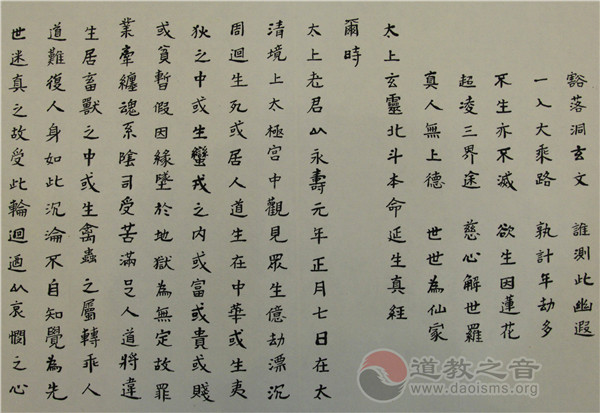 豁落洞玄文 誰測此幽遐
一入大乘路 孰計年劫多
不生亦不滅 欲生因蓮花
超凌三界途 慈心解世羅
真人無上德 世世為仙家
太上玄靈北斗本命延生真經
爾時
太上老君以永壽元年正月七日在太
清境上太極宮中觀見眾生億劫漂沉
周迴生死或居人道生在中華或生夷
狄之中或生蠻戎之內或富或貴或賤
或貧暫假因緣墜於地獄為無定故罪
業牽纏魂系陰司受苦滿足人道將違
生居畜獸之中或生禽蟲之屬轉乖人
道難復人身如此沉淪不自知覺為先
世迷真之故受此輪迴迺以哀憫之心
道教之音
www.daoisms.org